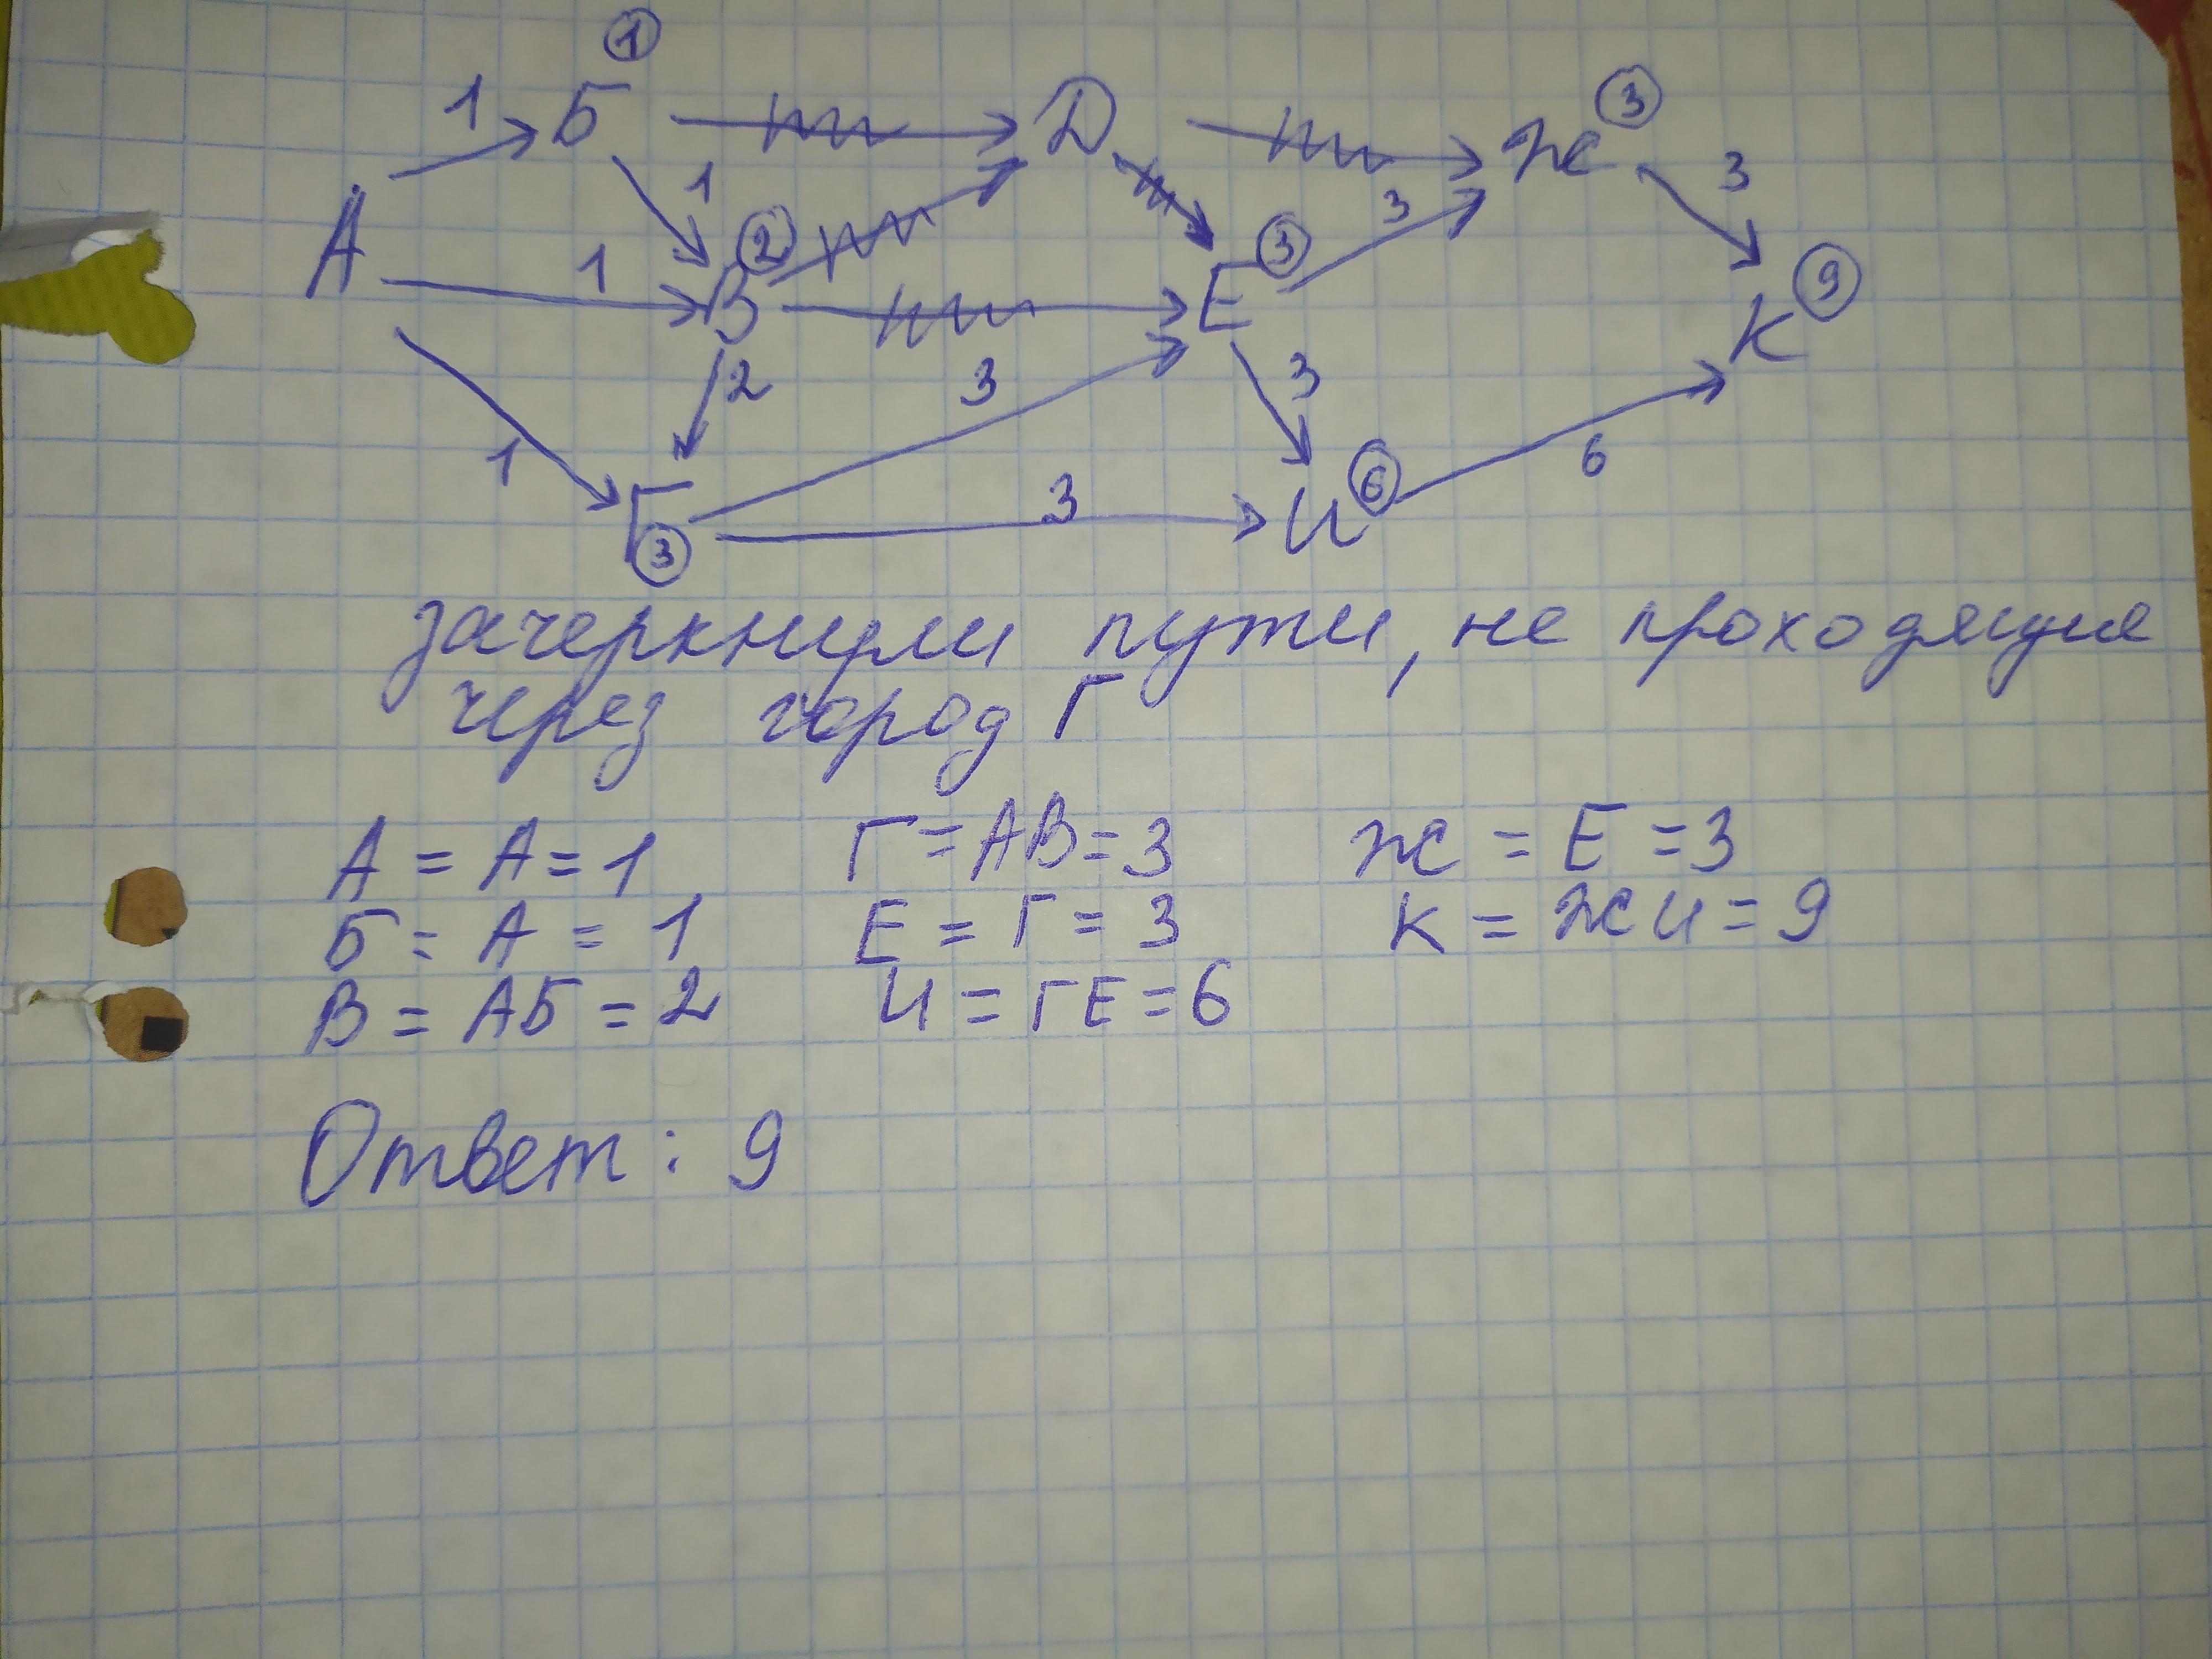 ①
1 Б Д Ж ③
1 3
А 1 В ② Е ③ 3 К ⑨
2 3 3
1 Г ③ 3 И ⑥ 6
зачеркнули пути, не проходящие
через город Г
А = А = 1 Г = АВ = 3 Ж = Е = 3
Б = А = 1 Е = Г = 3 К = ЖИ = 9
В = АБ = 2 И = ГЕ = 6
Ответ: 9